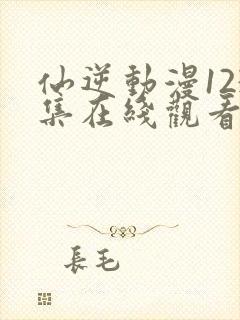 仙逆動漫12
集在綫觀看
長毛